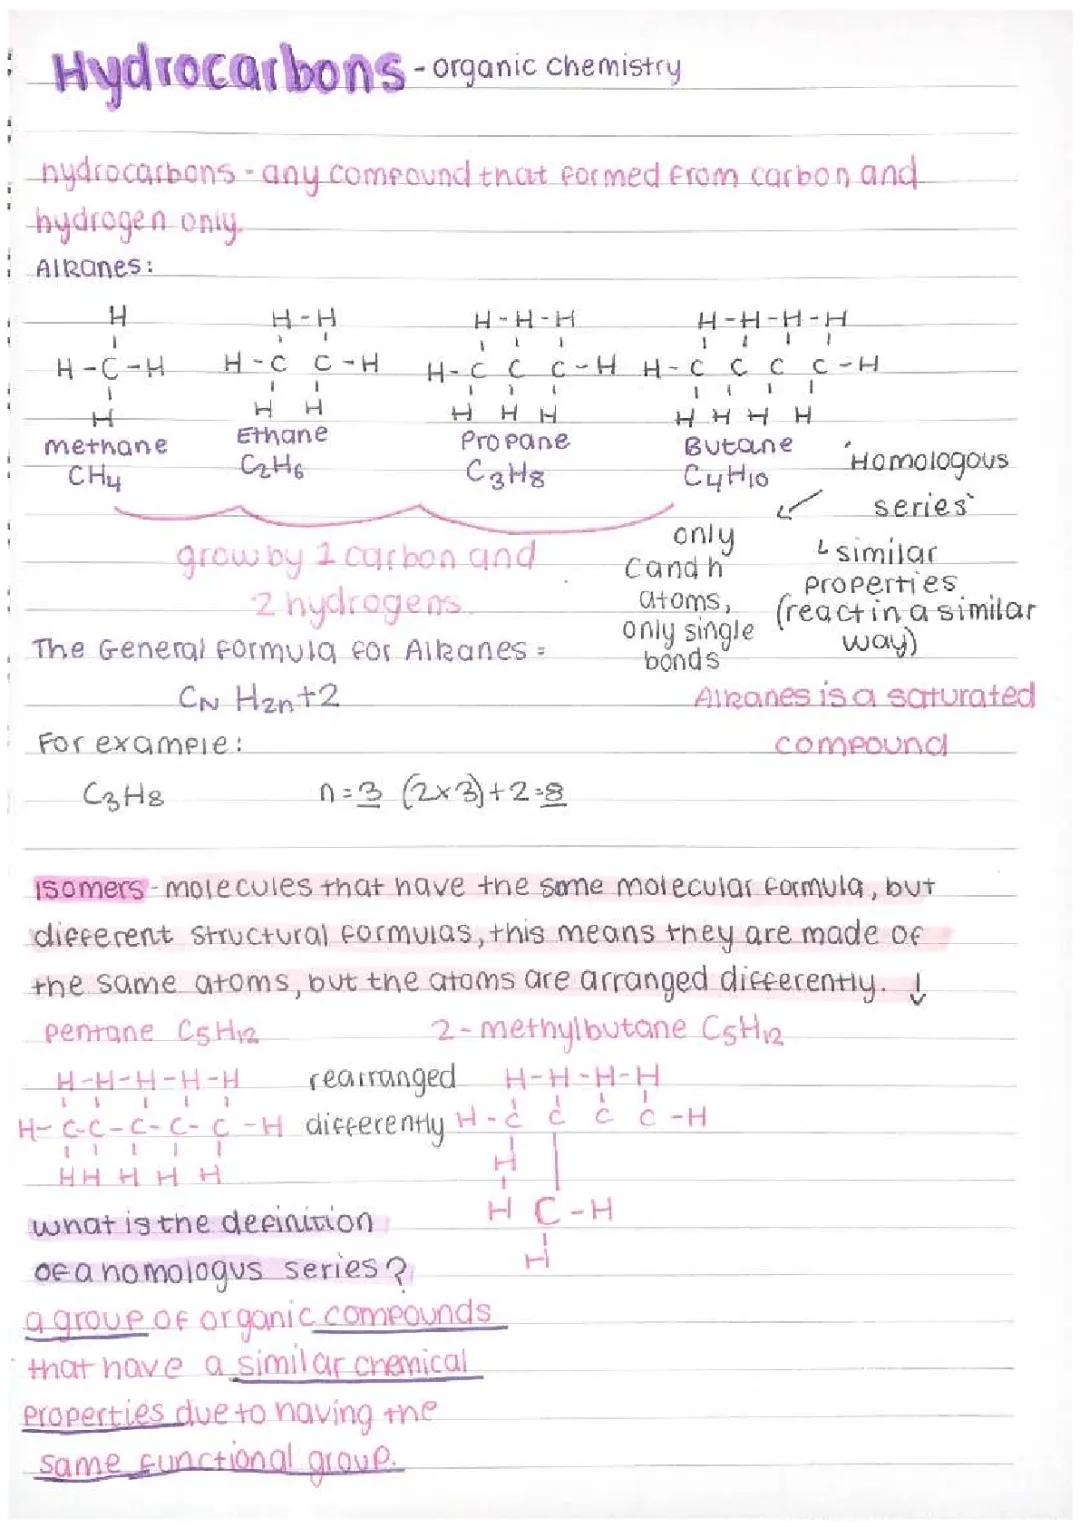 Hydrocarbons - organic chemistry
hydrocarbons - any compound that formed from carbon and
hydrogen only.
Alkanes:
H
H-C-H
H
methane
CH4
H-H
H-C C-H
H H
Ethane
C2H6
H-H-H
H-C C C-H
H H H
Propane
C3H8
H-H-H-H
H-C C C C-H
H H H H
Butane
C4H10
'Homologous
series'
↳ similar
properties
(react in a similar
way)
only
C and h
atoms,
only single
bonds
grow by 1 carbon and
2 hydrogens
The General formula for Alkanes =
CN H2n+2
Alkanes is a saturated
compound
For example:
C3H8 n=3 (2×3)+2=8
isomers - molecules that have the same molecular formula, but
different structural formulas, this means they are made of
the same atoms, but the atoms are arranged differently. ↓
pentane C5H12
2-methylbutane C5H12
H-H-H-H-H
H-C-C-C-C-C-H
H H H H H
rearranged
differently
H-H-H-H
H-C C C C-H
H
H C-H
H
what is the definition
of a homologus series?
a group of organic compounds
that have a similar chemical
properties due to having the
same functional group.